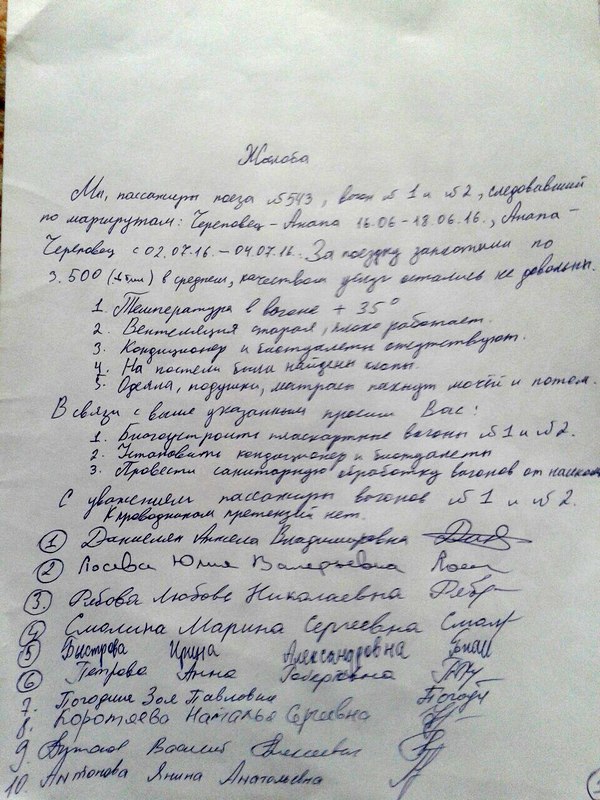 Жалоба
Мы, пассажиры поезда №543, вагон №1 и №2, следовавший
по маршрутам: Череповец - Анапа 16.06-18.06.16., Анапа -
Череповец с 02.07.16. - 04.07.16. За поездку заплатили по
3.500 в среднем, качеством услуг остались не довольны.
1. Температура в вагоне + 35°
2. Вентеляция старая, плохо работает.
3. Кондиционер и биотуалеты отсутствуют.
4. На постели были найдены клопы.
5. Одеяла, подушки, матрасы пахнут мочёй и потом.
В связи с выше указанным просим Вас:
1. Благоустроить пласкартные вагоны №1 и №2.
2. Установить кондиционер и биотуалеты
3. Провести санитарную обработку вагонов от насеком
С уважением пассажиры вагонов №1 и №2.
К проводникам претензий нет.
1 Даниелян Анжела Владимировна
2 Юлия Валерьевна
3. Рябова Любовь Николаевна Рябр
4 Смолина Марина Сергеевна Смол
5 Быстрова Ирина Александровна
6 Петрова Анна Робертовна
7. Погодина Зоя Павловна Погод
8. Коротяева Наталья Сергеевна
9 Василий Алексеевич
10. Антонова Янина Анатольевна